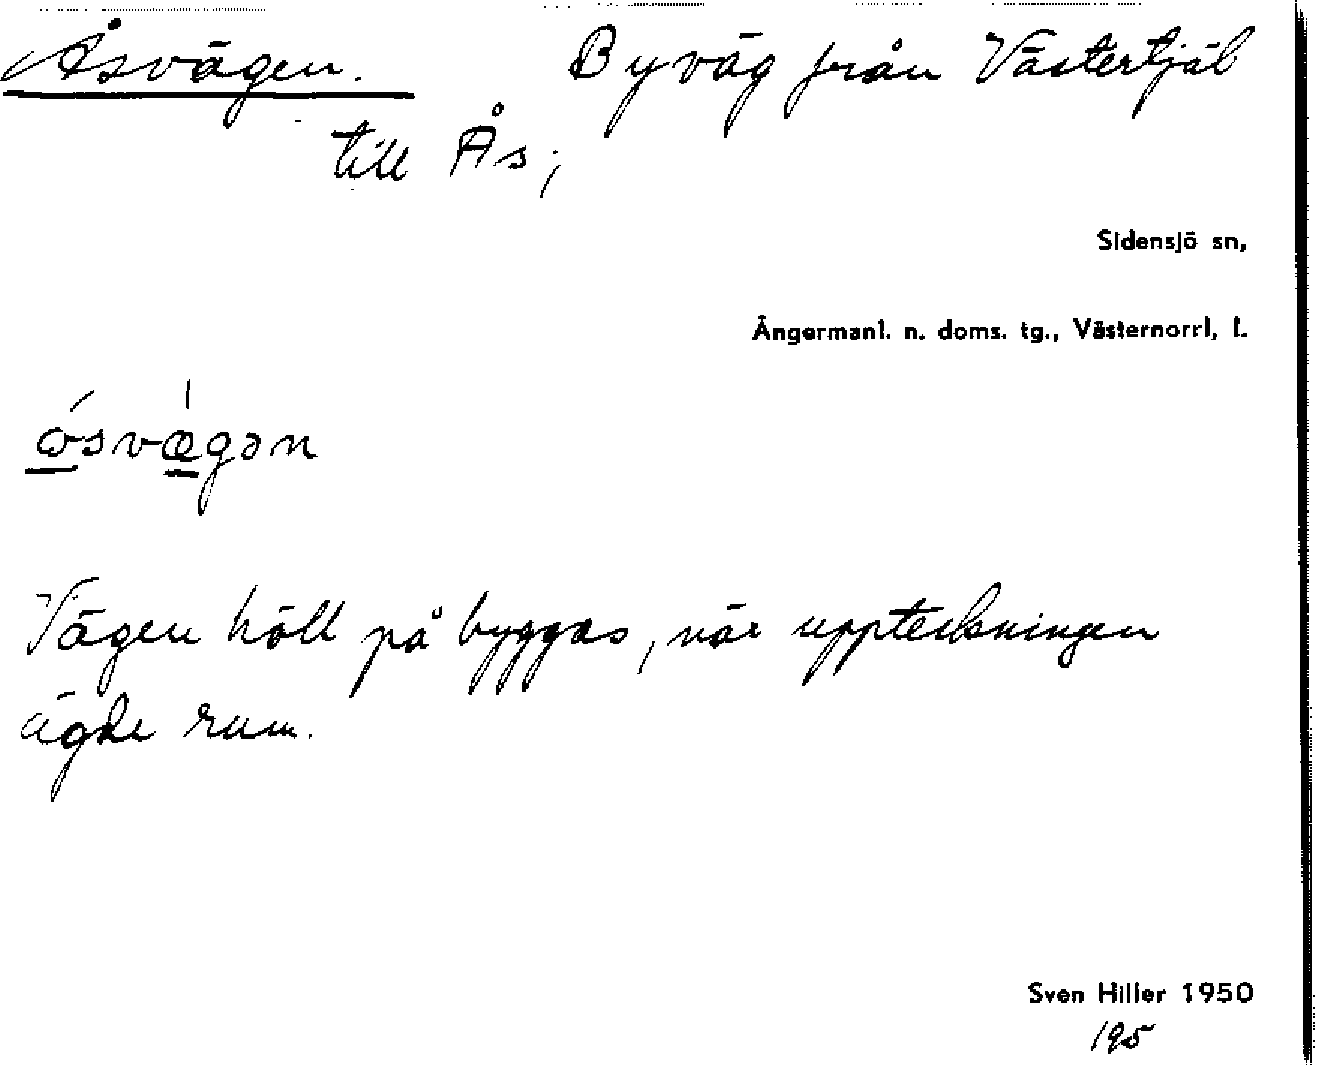 Åsvägen. Byväg från Västertjäl
till Ås;
Sidensjö sn,
Ångermanl. n. doms. tg., Västernorrl. l.
ɷ́svæ̍gən
Vägen höll på byggas, när uppteckningen
ägde rum.
Sven Hiller 1950
195